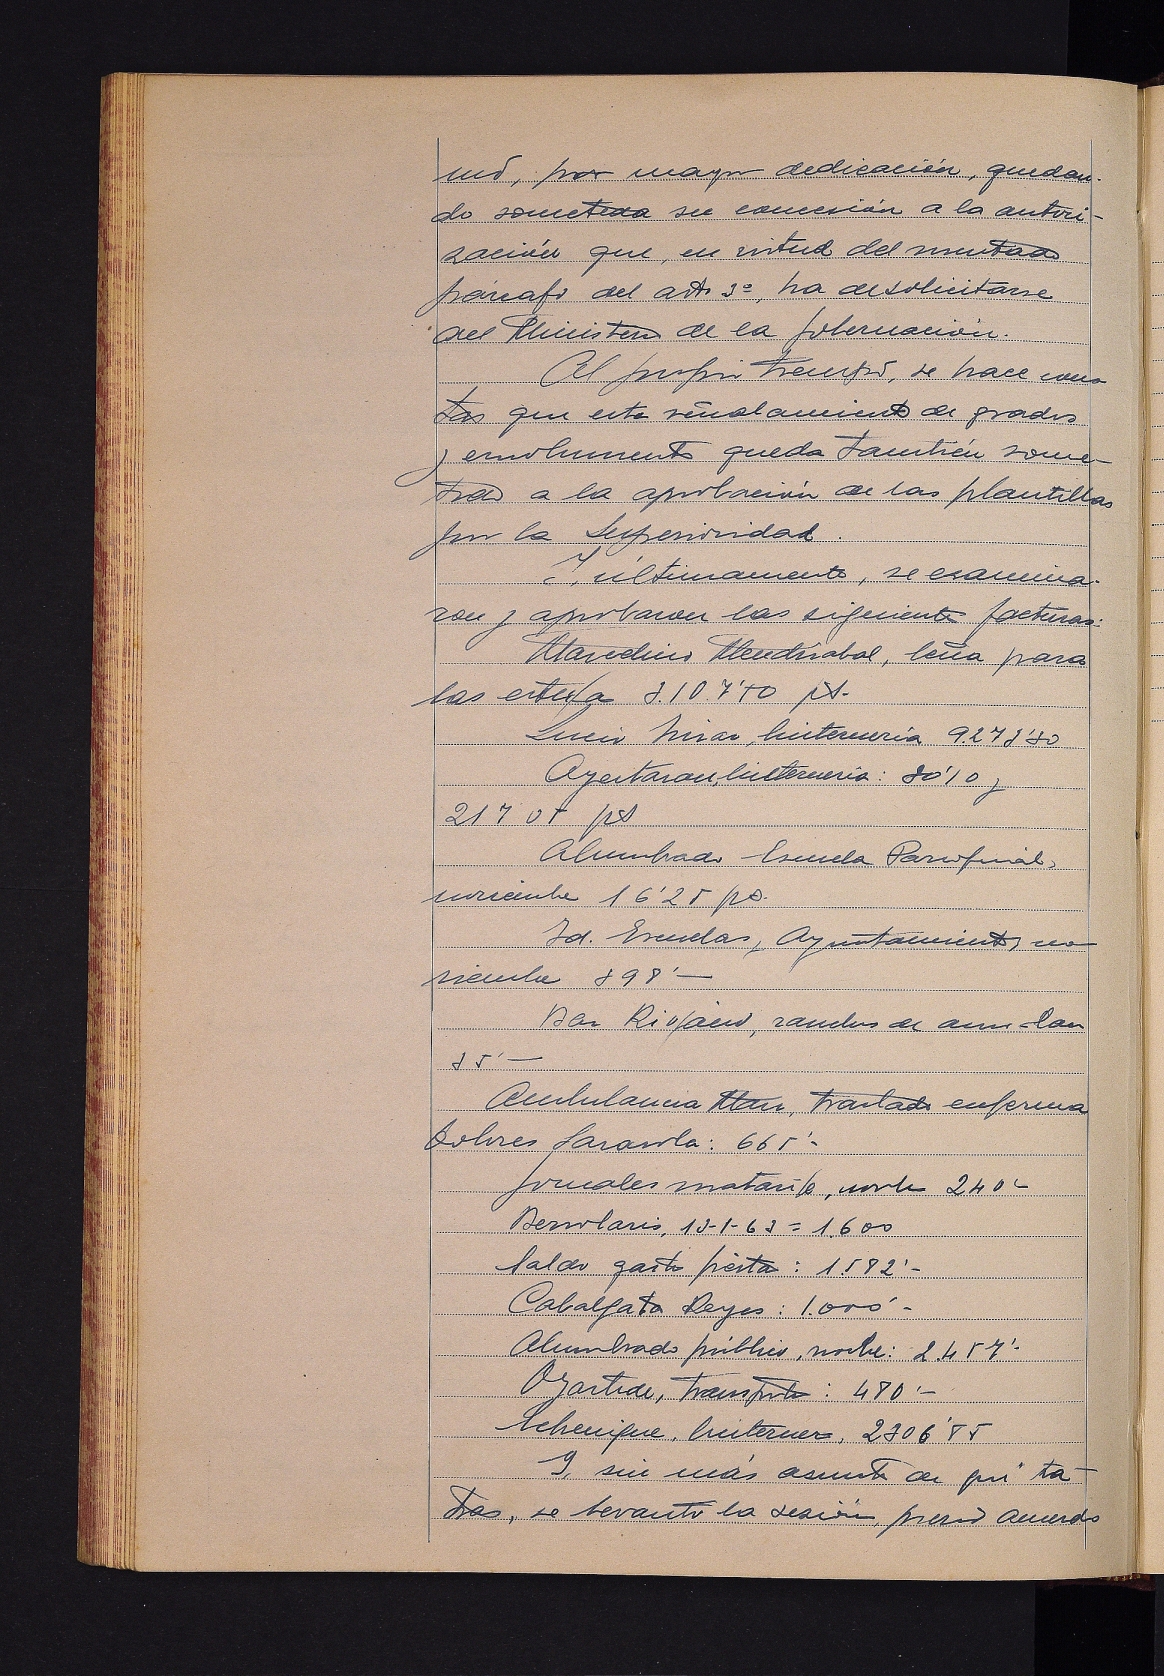 por mayor dedicación, quedan-
do someteda su concesión a la autori-
zación que, en virtud del mentado
párrafo del arto 3º, ha desolicitarse
del Ministerio de la Gobernación.
Al propio tiempo, se hace cons
tar que este señalamiento de grados
y emolumentos queda también some-
tido a la aprobación de las plantillas
por la Superioridad.
Y, últimamente, se examina-
ron y aprobaron las siguientes facturas:
Marcelino Mendizabal, leña para
las estufas
Lucio linterneria
linterneria: 80'10 y
217 05 pts
Alumbrado Escuela Parroquial,
noviembre 16'25 pts.
Id. Escuelas, Ayuntamiento, no
viembre 898'—
Bar Riojano,
35'—
Ambulancia traslado enferma
Dolores Sarasola: 665'-
Jornales matarife, novbre 240'-
Bersolaris, 13-1-63 = 1.600
Saldo gasto fiesta: 1.582'-
Cabalgata Reyes: 1.000'-
Alumbrado público, novbre: 2.457'-
Oyartide, transporte: 480'-
Echenique, linternero, 2306'55
Y, sin más asuntos de qué tra
tar, se levantó la sesión, previo acuerdo